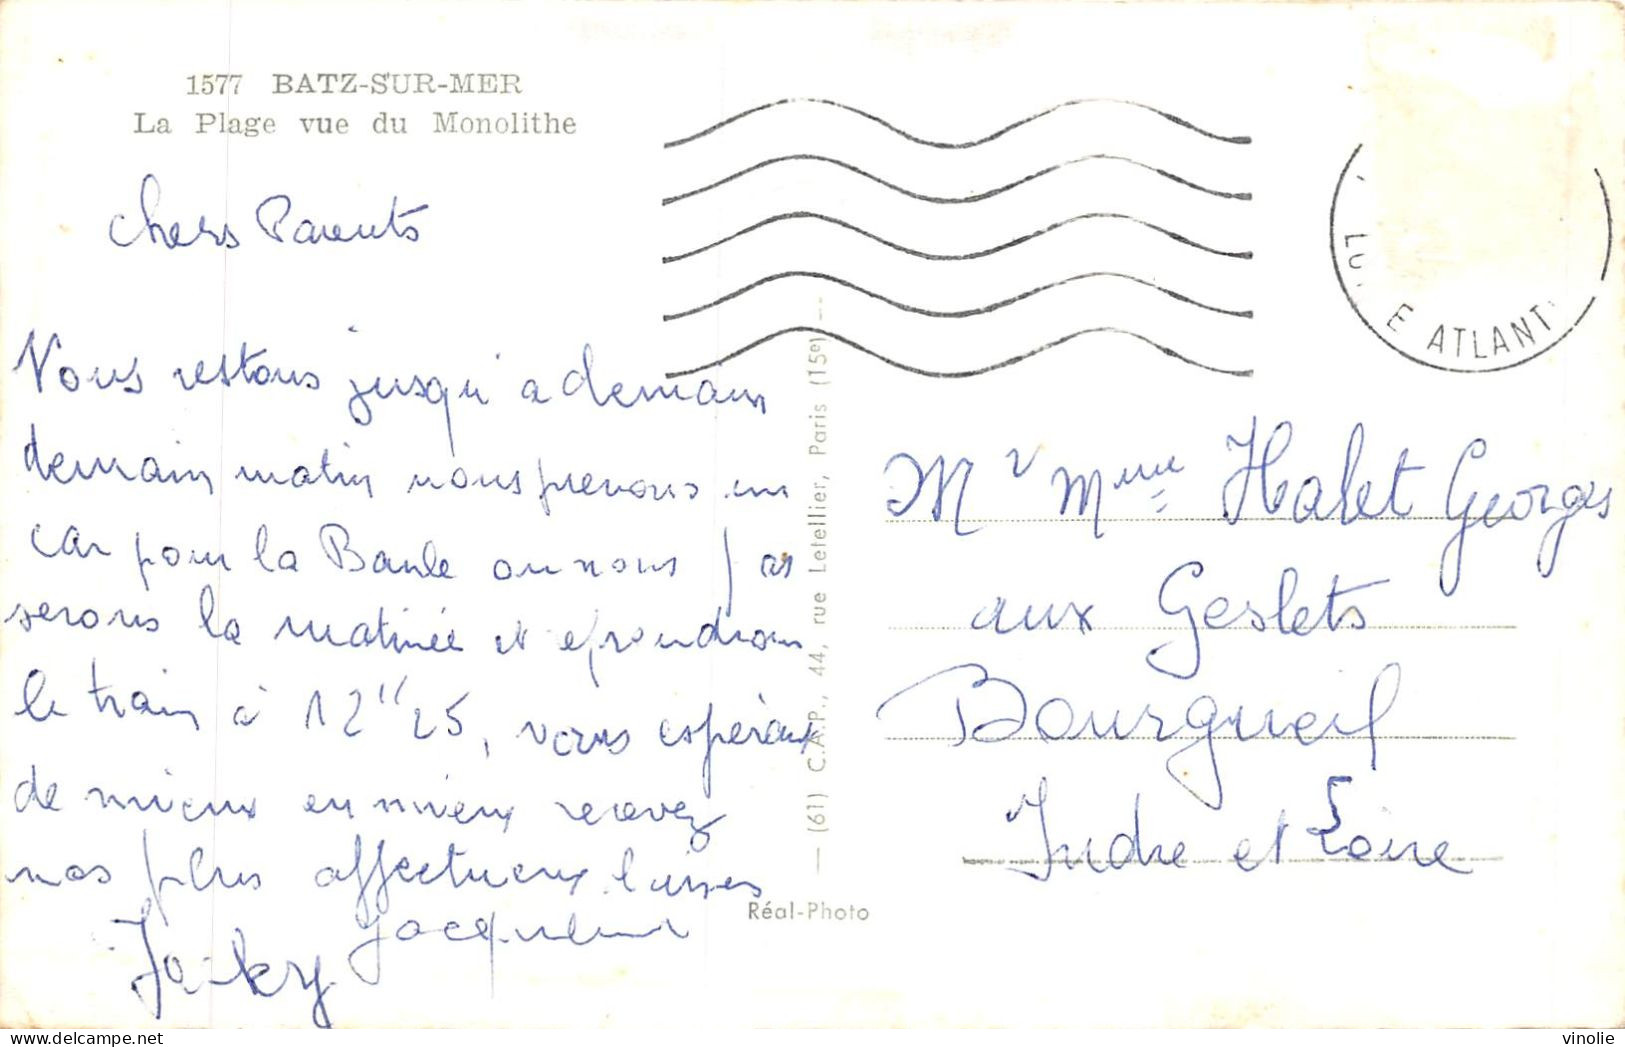 1577 BATZ-SUR-MER
La Plage vue du Monolithe
chers Parents
Nous restons jusqu'a demain
demain matin nous prenons un
car pour la Baule ou nous pas
serons la matinée et reprendrons
le train à 12"25, vous espérant
de mieux en mieux recevez
nos plus affectueux bises
Jacqueline
Jacky
— (61) C.A.P., 44, rue Letellier, Paris (15e) —
Réal-Photo
E ATLANT
Mr Mme Halet Georges
aux Geslets
Bourgueil
Indre et Loire
vinolie